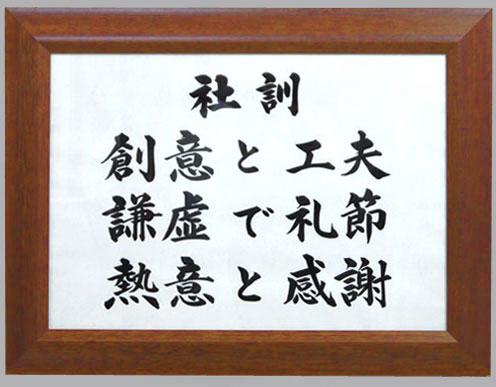 社訓
創意と工夫
謙虚で礼節
熱意と感謝